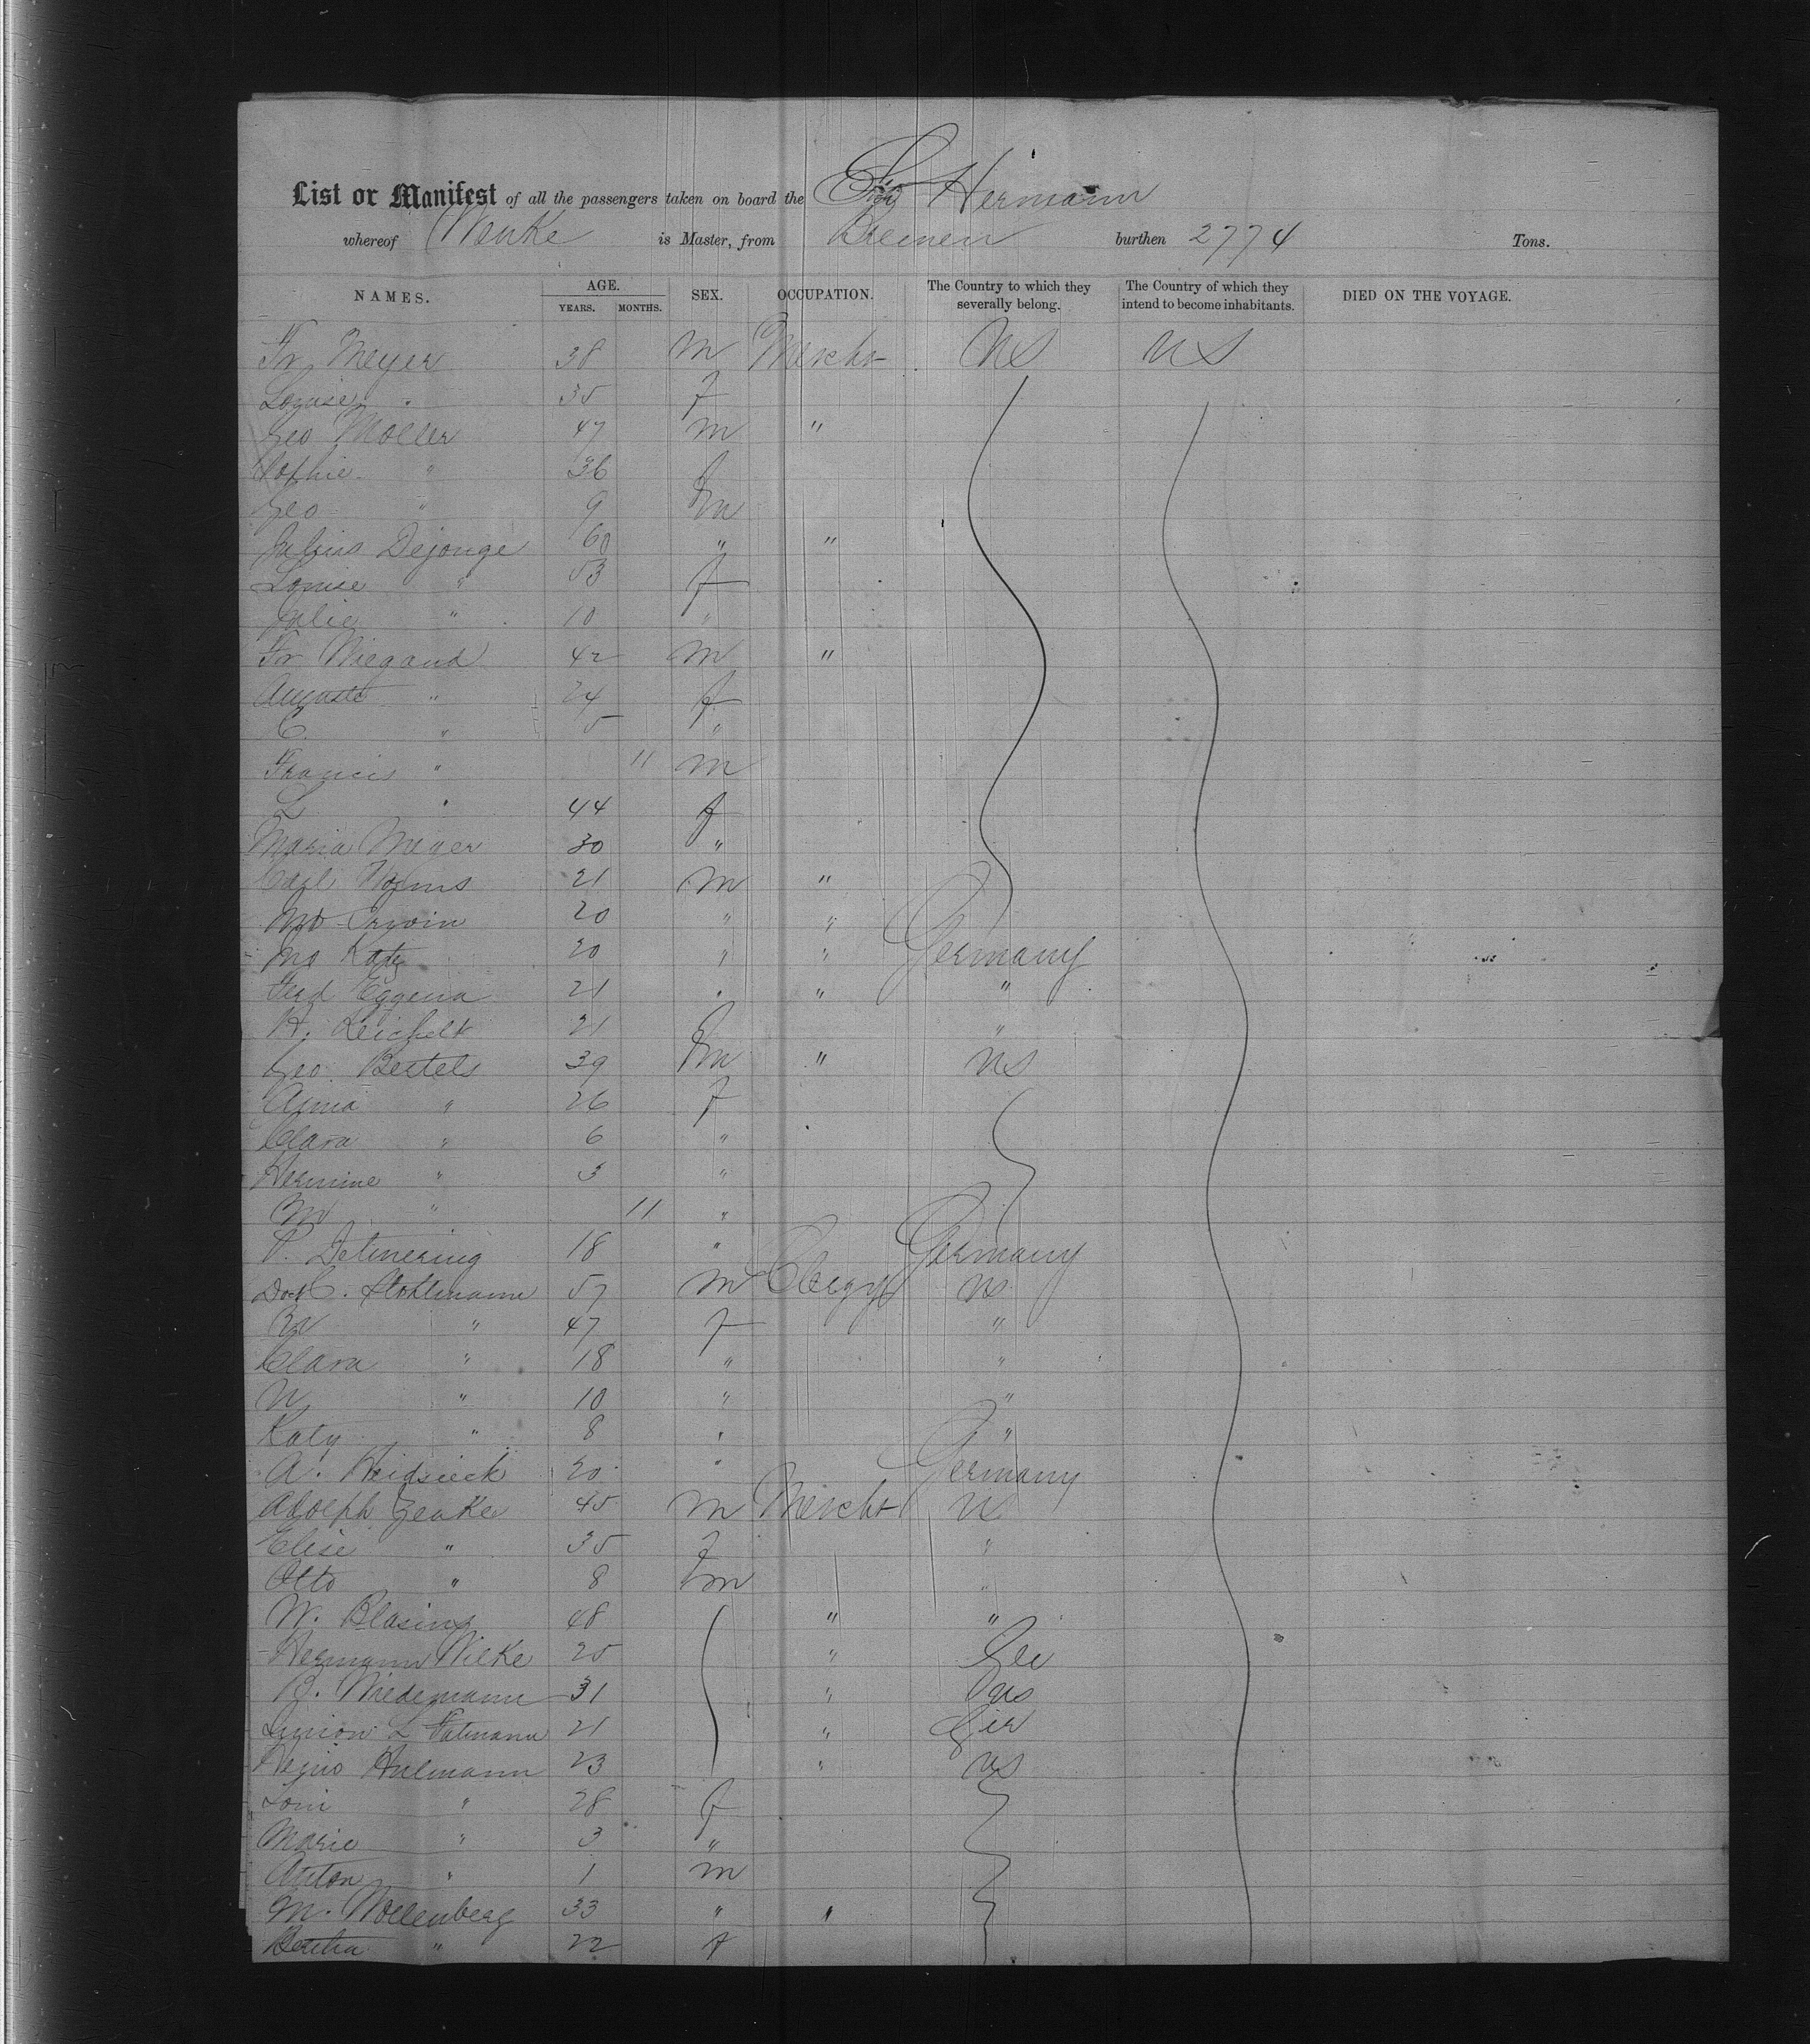 List or Manifest of all the passengers taken on board the Hermann
whereof Wenke is Master, from Bremen burthen 2774 Tons.
NAMES. AGE. SEX. OCCUPATION. The Country to which they severally belong. The Country of which they intend to become inhabitants. DIED ON THE VOYAGE.
YEARS. MONTHS.
Fr Meyer 38 m Mercht US US
Louise " 35 f
Geo Moller 47 m "
Sophie " 36 f
Geo " 9 m
Julius Dejonge 60 " "
Louise " 53 f
Julie " 10 "
Fr Wiegand 42 m "
Auguste " 24 f
C. " 5 "
Francis " 11 m
L " 44 f
Maria Meyer 30 "
Carl 21 m "
Erwin 20 " "
Katz 20 " " Germany
Ferd Eggena 21 " " "
H. Reichelt 21 f "
Geo. Bertels 39 m " US
Anna " 26 f
Clara " 6 "
Hermine " 3 "
M " 11 "
Detmering 18 " Germany
Stohlmann 57 m Clergy US
47 f "
Clara " 18 " "
N " 10 " "
Katy " 8 " "
A. Heidsieck 20 " Germany
Adolph Zenke 45 m Mercht US
Elise " 35 f "
Otto " 8 m "
W. Blasing 48 " "
Hermann Wilke 25 " Ger
B. Wiedemann 31 " US
L Fatmann 21 " Ger
Hulmann 23 " US
" 28 f
Marie " 3 "
Anton " 1 m
M. Wollenberg 33 " "
Bertha " 22 f